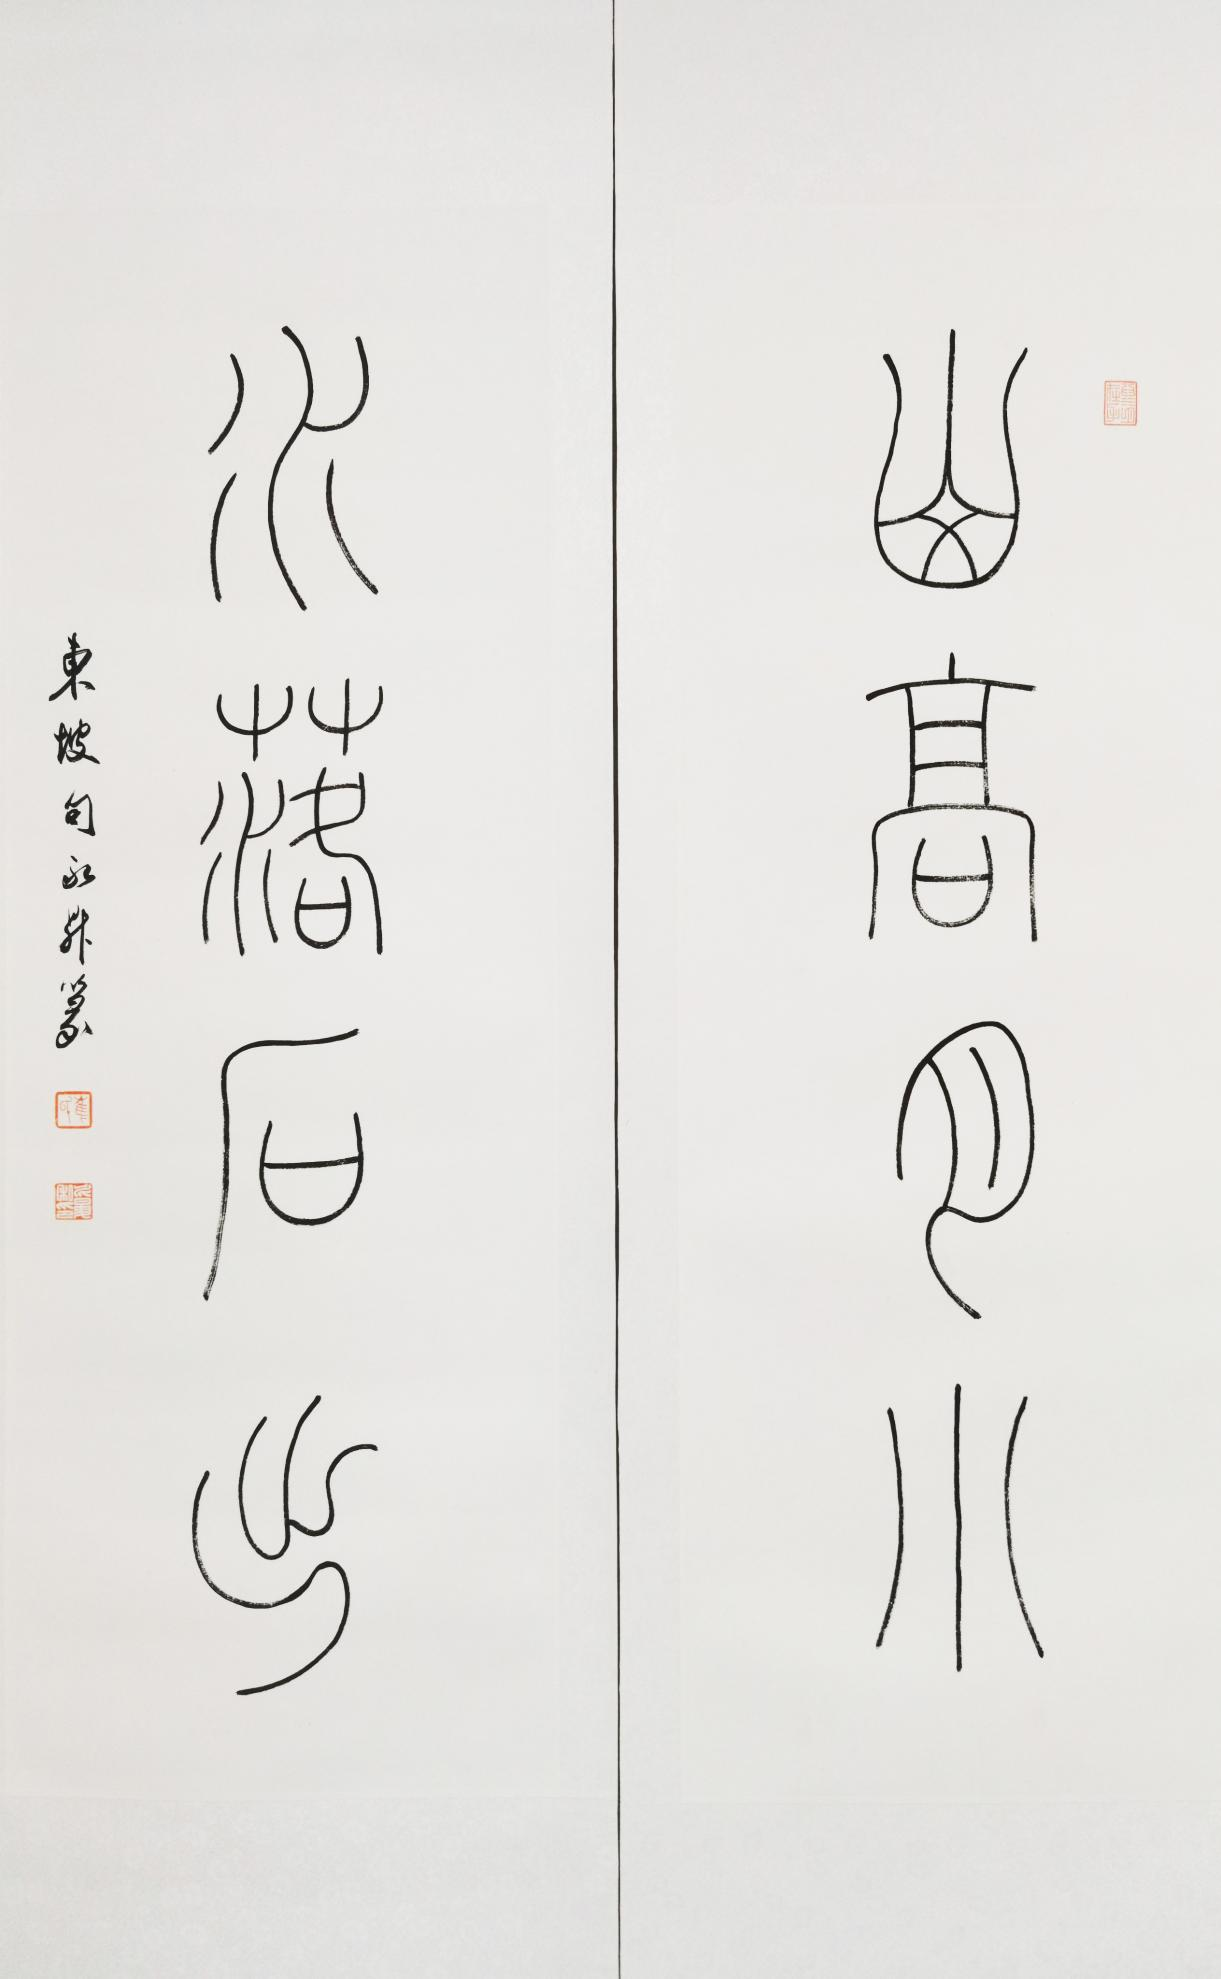 山高月小
水落石出
東坡句永昇篆